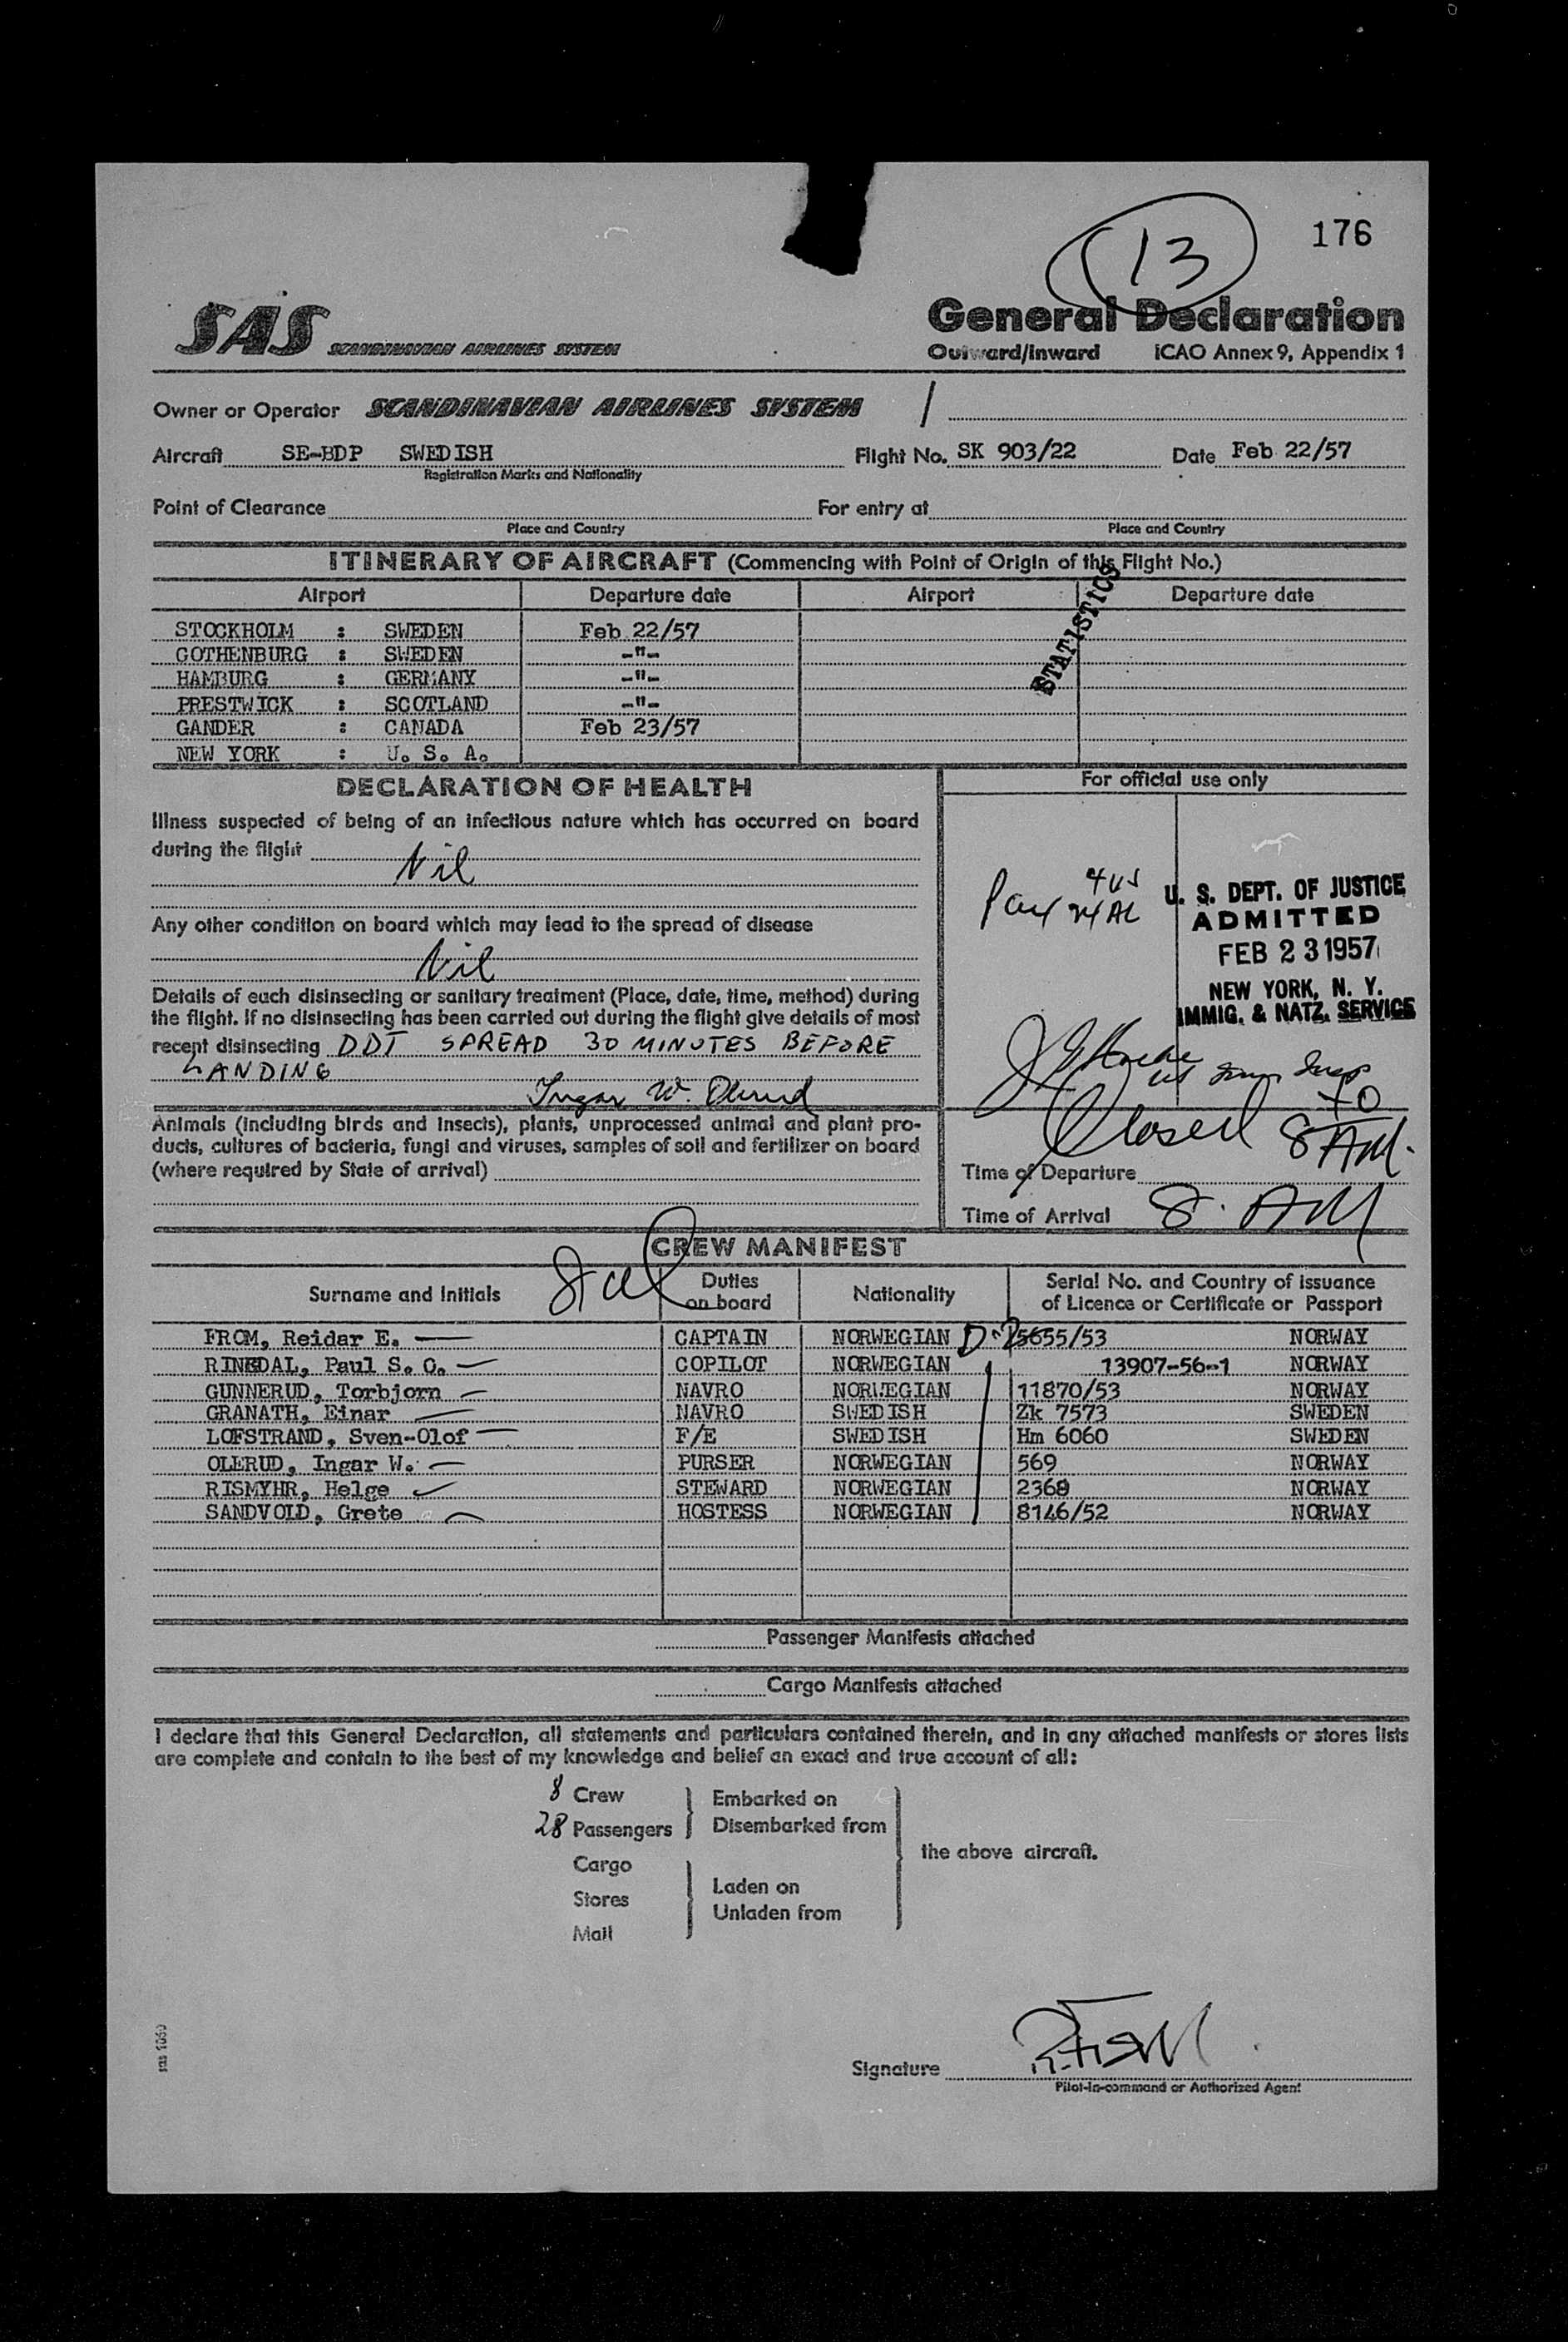 13
176
SAS SCANDINAVIAN AIRLINES SYSTEM
General Declaration
Outward/Inward ICAO Annex 9, Appendix 1
Owner or Operator SCANDINAVIAN AIRLINES SYSTEM /
Aircraft SE-BDP SWEDISH Flight No. SK 903/22 Date Feb 22/57
Registration Marks and Nationality
Point of Clearance For entry at
Place and Country Place and Country
ITINERARY OF AIRCRAFT (Commencing with Point of Origin of this Flight No.)
Airport Departure date Airport Departure date
STATISTICS
STOCKHOLM : SWEDEN Feb 22/57
GOTHENBURG : SWEDEN -"-
HAMBURG : GERMANY -"-
PRESTWICK : SCOTLAND -"-
GANDER : CANADA Feb 23/57
NEW YORK : U. S. A.
DECLARATION OF HEALTH
Illness suspected of being of an infectious nature which has occurred on board
during the flight Nil
Any other condition on board which may lead to the spread of disease
Nil
Details of each disinsecting or sanitary treatment (Place, date, time, method) during
the flight. If no disinsecting has been carried out during the flight give details of most
recent disinsecting DDT SPREAD 30 MINUTES BEFORE
LANDING
Ingar W. Olerud
Animals (including birds and insects), plants, unprocessed animal and plant pro-
ducts, cultures of bacteria, fungi and viruses, samples of soil and fertilizer on board
(where required by State of arrival)
For official use only
4 US
Pax 24 AL
U. S. DEPT. OF JUSTICE
ADMITTED
FEB 23 1957
NEW YORK, N. Y.
IMMIG. & NATZ. SERVICE
Closed 8 AM.
Time of Departure
Time of Arrival 8. AM
CREW MANIFEST
Surname and Initials Duties on board Nationality Serial No. and Country of issuance of Licence or Certificate or Passport
FROM, Reidar E. CAPTAIN NORWEGIAN 5655/53 NORWAY
RINEDAL, Paul S. C. COPILOT NORWEGIAN 13907-56-1 NORWAY
GUNNERUD, Torbjorn NAVRO NORWEGIAN 11870/53 NORWAY
GRANATH, Einar NAVRO SWEDISH Zk 7573 SWEDEN
LOFSTRAND, Sven-Olof F/E SWEDISH Hm 6060 SWEDEN
OLERUD, Ingar W. PURSER NORWEGIAN 569 NORWAY
RISMYHR, Helge STEWARD NORWEGIAN 2368 NORWAY
SANDVOLD, Grete HOSTESS NORWEGIAN 8146/52 NORWAY
Passenger Manifests attached
Cargo Manifests attached
I declare that this General Declaration, all statements and particulars contained therein, and in any attached manifests or stores lists
are complete and contain to the best of my knowledge and belief an exact and true account of all:
8 Crew
28 Passengers
Cargo
Stores
Mail
Embarked on
Disembarked from
Laden on
Unladen from
the above aircraft.
Signature
Pilot-in-command or Authorized Agent
sas 1060